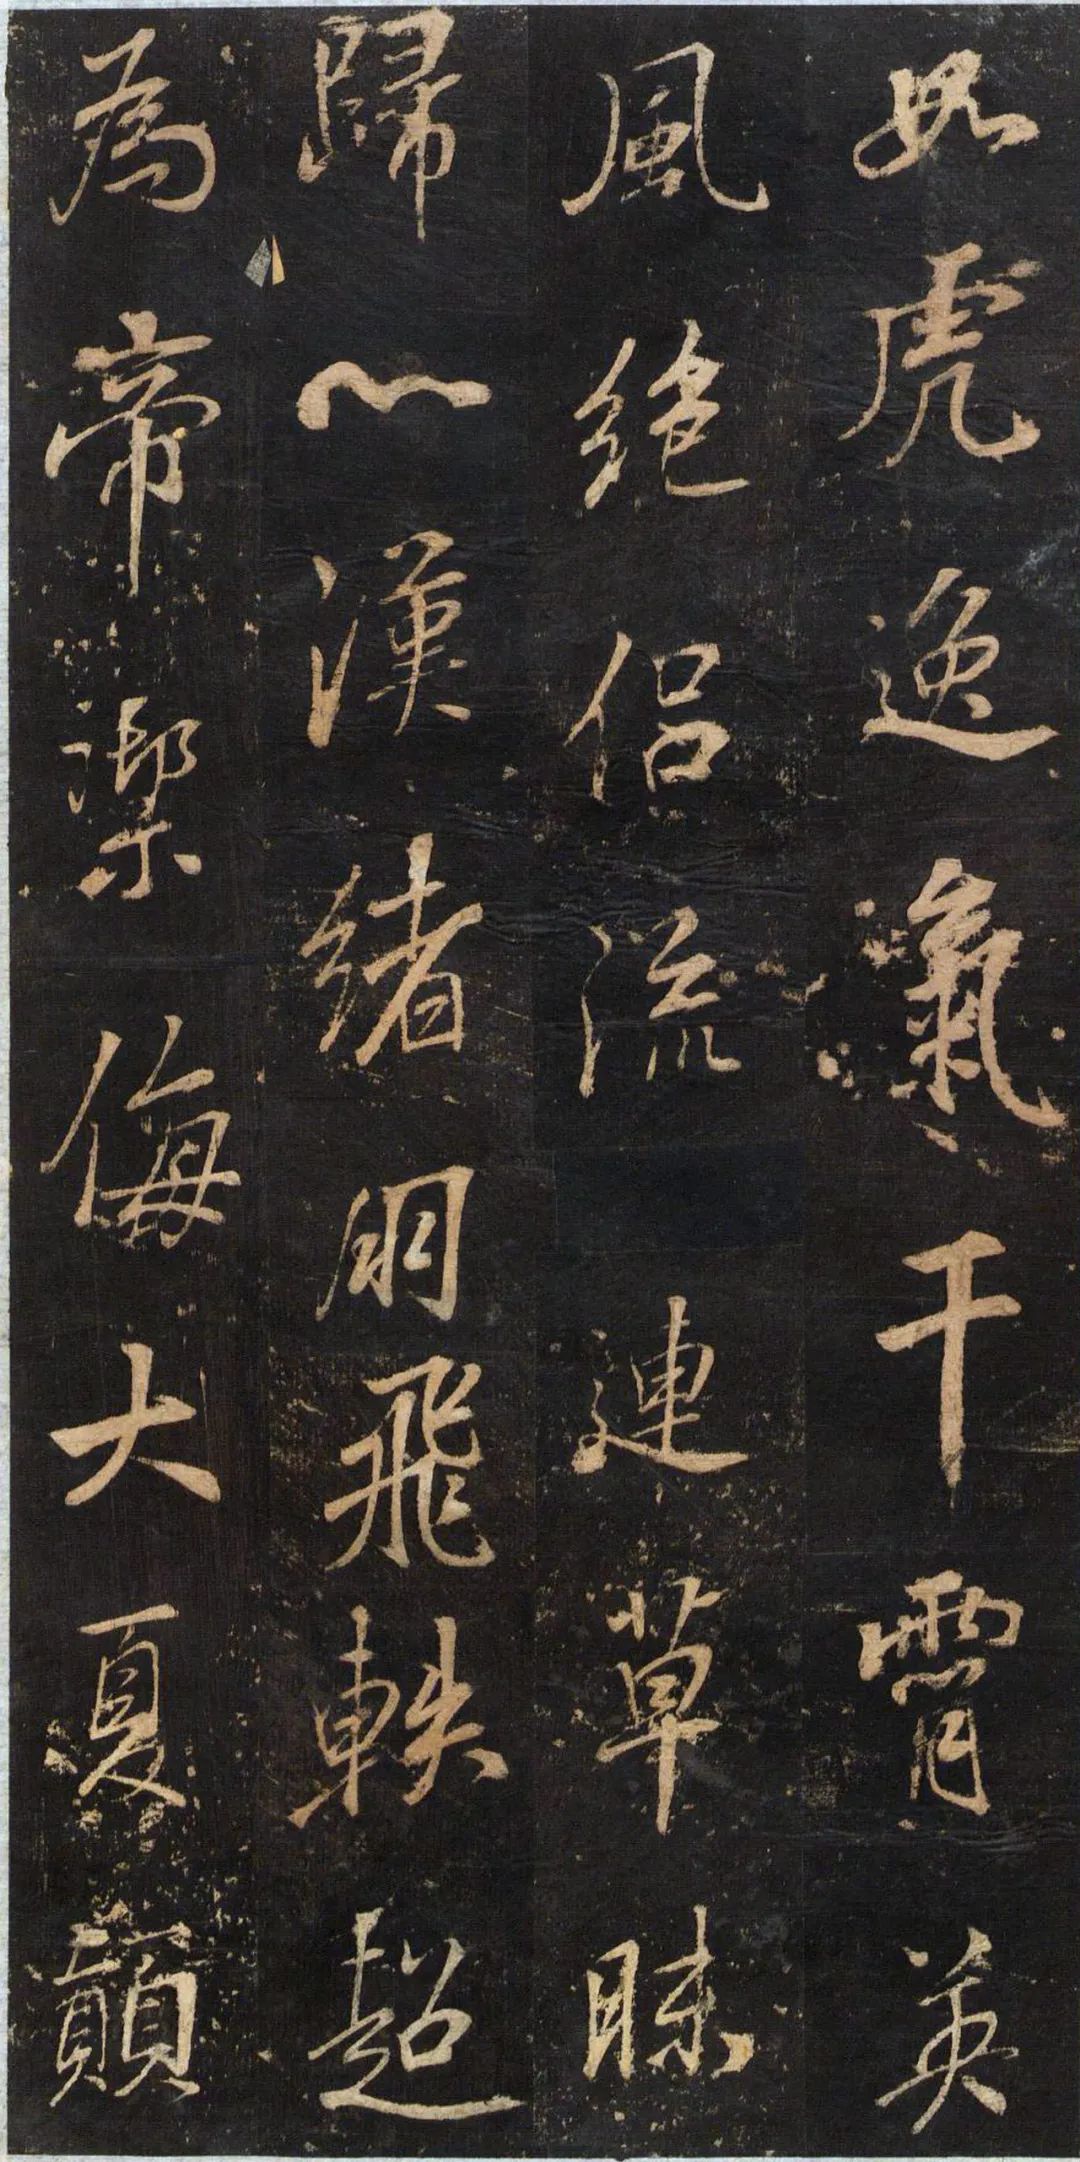 如虎逸氣干霄英
風絕侶流連草昧
歸心漢緒朋飛軼超
為帝禦侮大夏顛